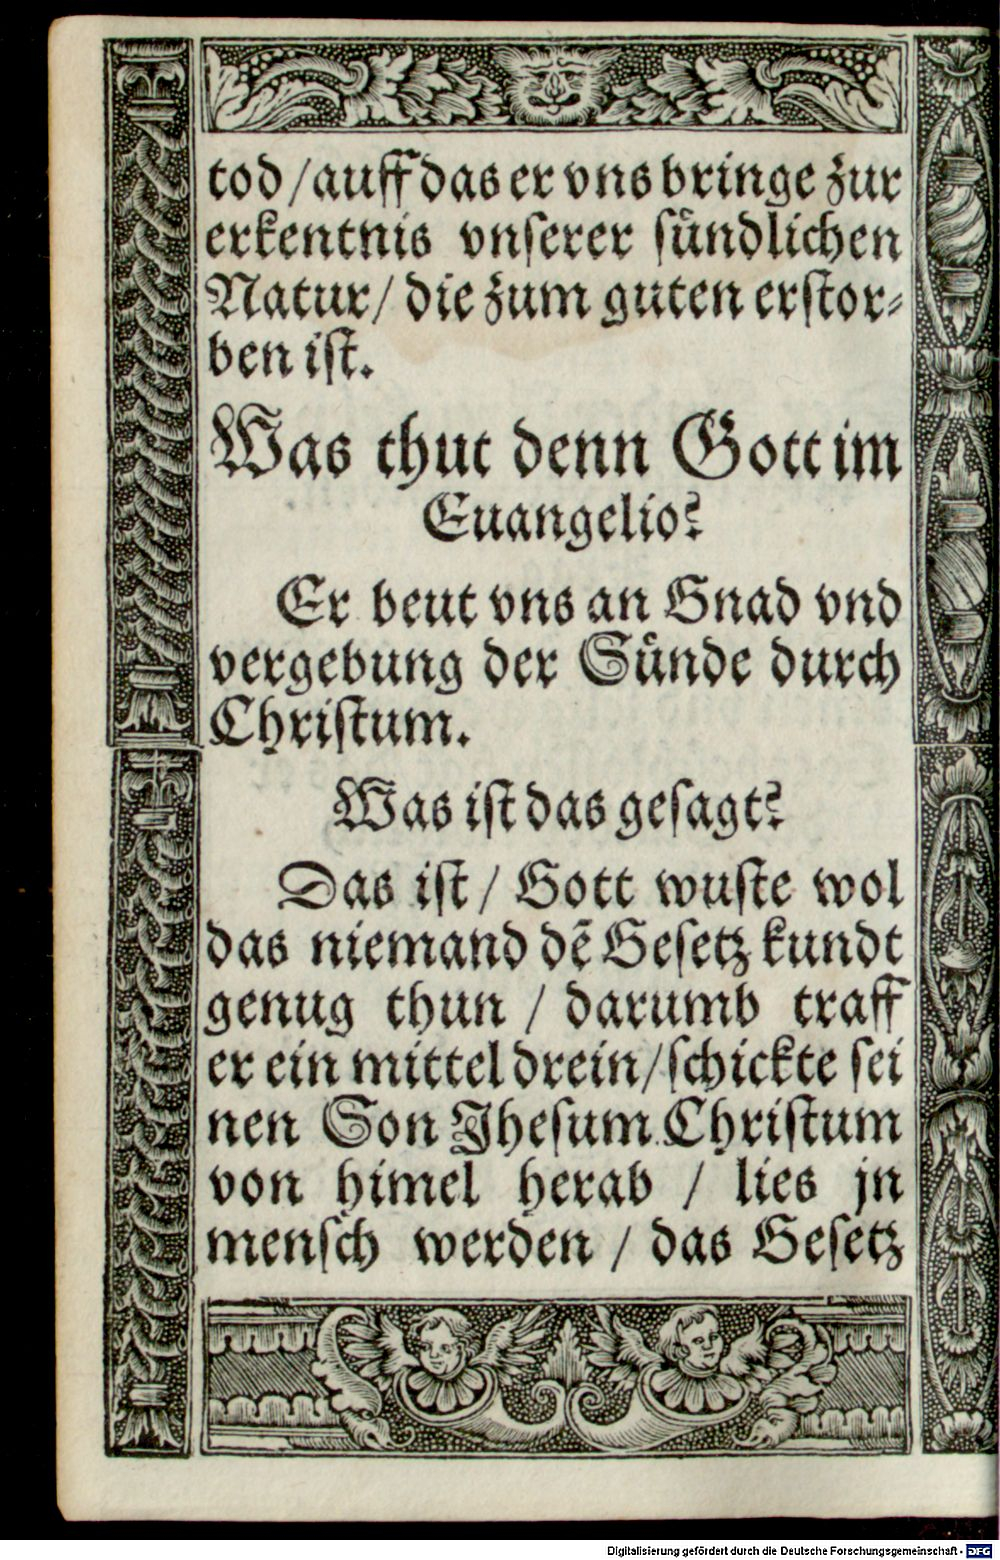 tod / auff das er vns bringe zur
erkentnis vnserer sündlichen
Natur / die zum guten erstor⸗
ben ist.
Was thut denn Gott im
Euangelio?
Er beut vns an Gnad vnd
vergebung der Sünde durch
Christum.
Was ist das gesagt?
Das ist / Gott wuste wol
das niemand dẽ Gesetz kundt
genug thun / darumb traff
er ein mittel drein / schickte sei
nen Son Jhesum Christum
von himel herab / lies jn
mensch werden / das Gesetz
Digitalisierung gefördert durch die Deutsche Forschungsgemeinschaft - DFG